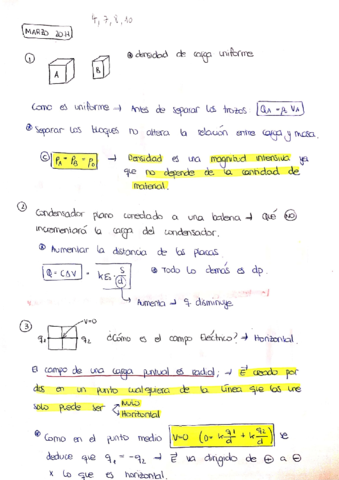 4, 7, 8, 10
MARZO 2014
① A B ⊛ densidad de carga uniforme
Como es uniforme → Antes de separar los trozos Q_A = ρ V_A
⊛ Separar los bloques no altera la relación entre carga y masa.
ⓒ ρ_A = ρ_B = ρ_0 → Densidad es una magnitud intensiva ya
que no depende de la cantidad de
material.
② Condensador plano conectado a una batería → Qué NO
incrementará la carga del condensador.
⊛ Aumentar la distancia de las placas
Q = C ΔV = kε_0 S/d ⊛ Todo lo demás es dp.
→ Aumenta → q disminuye
③ q_1 q_2 V=0 ¿Cómo es el campo eléctrico? → Horizontal.
El campo de una carga puntual es radial; → E creado por
dos en un punto cualquiera de la línea que las une
solo puede ser Nulo
Horizontal
⊛ Como en el punto medio V=0 (0 = k q_1/d + k q_2/d) se
deduce que q_1 = -q_2 → E va dirigido de ⊕ a ⊖
x lo que es horizontal.